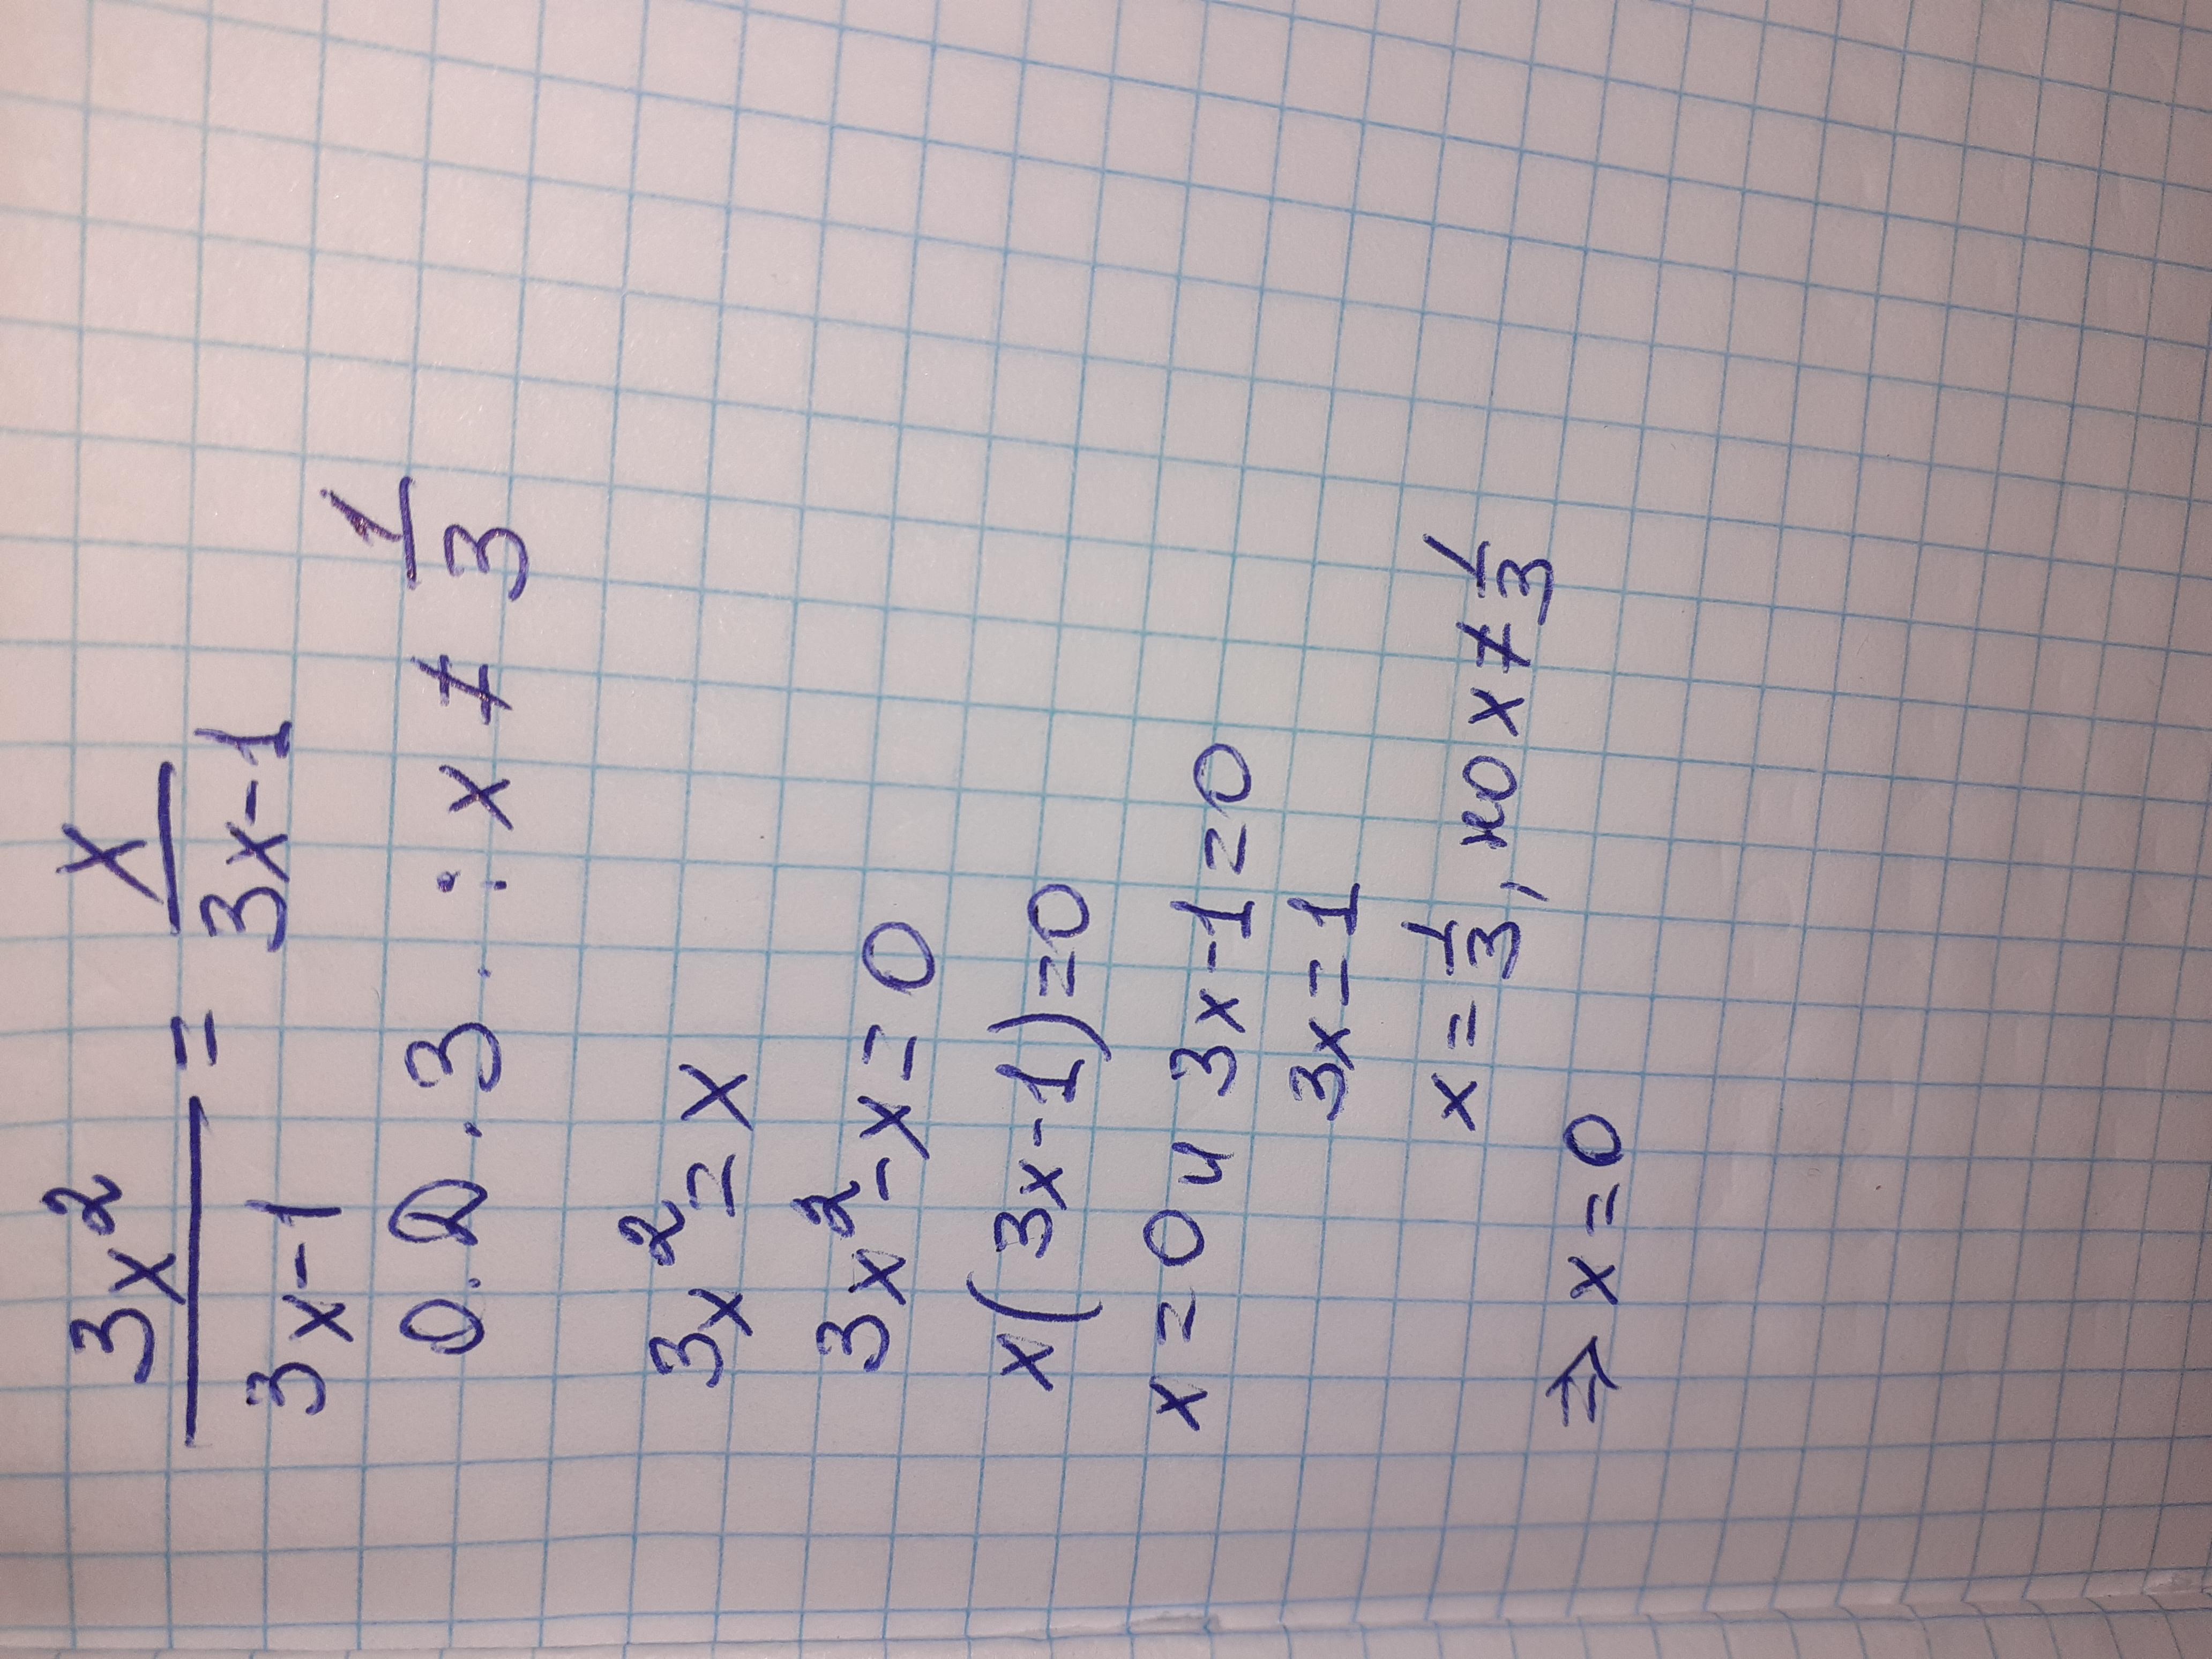 3x² / 3x-1 = x / 3x-1
О.Д.З. : x ≠ 1/3
3x² = x
3x² - x = 0
x(3x-1) = 0
x = 0 и 3x-1 = 0
3x = 1
x = 1/3, но x ≠ 1/3
⇒ x = 0